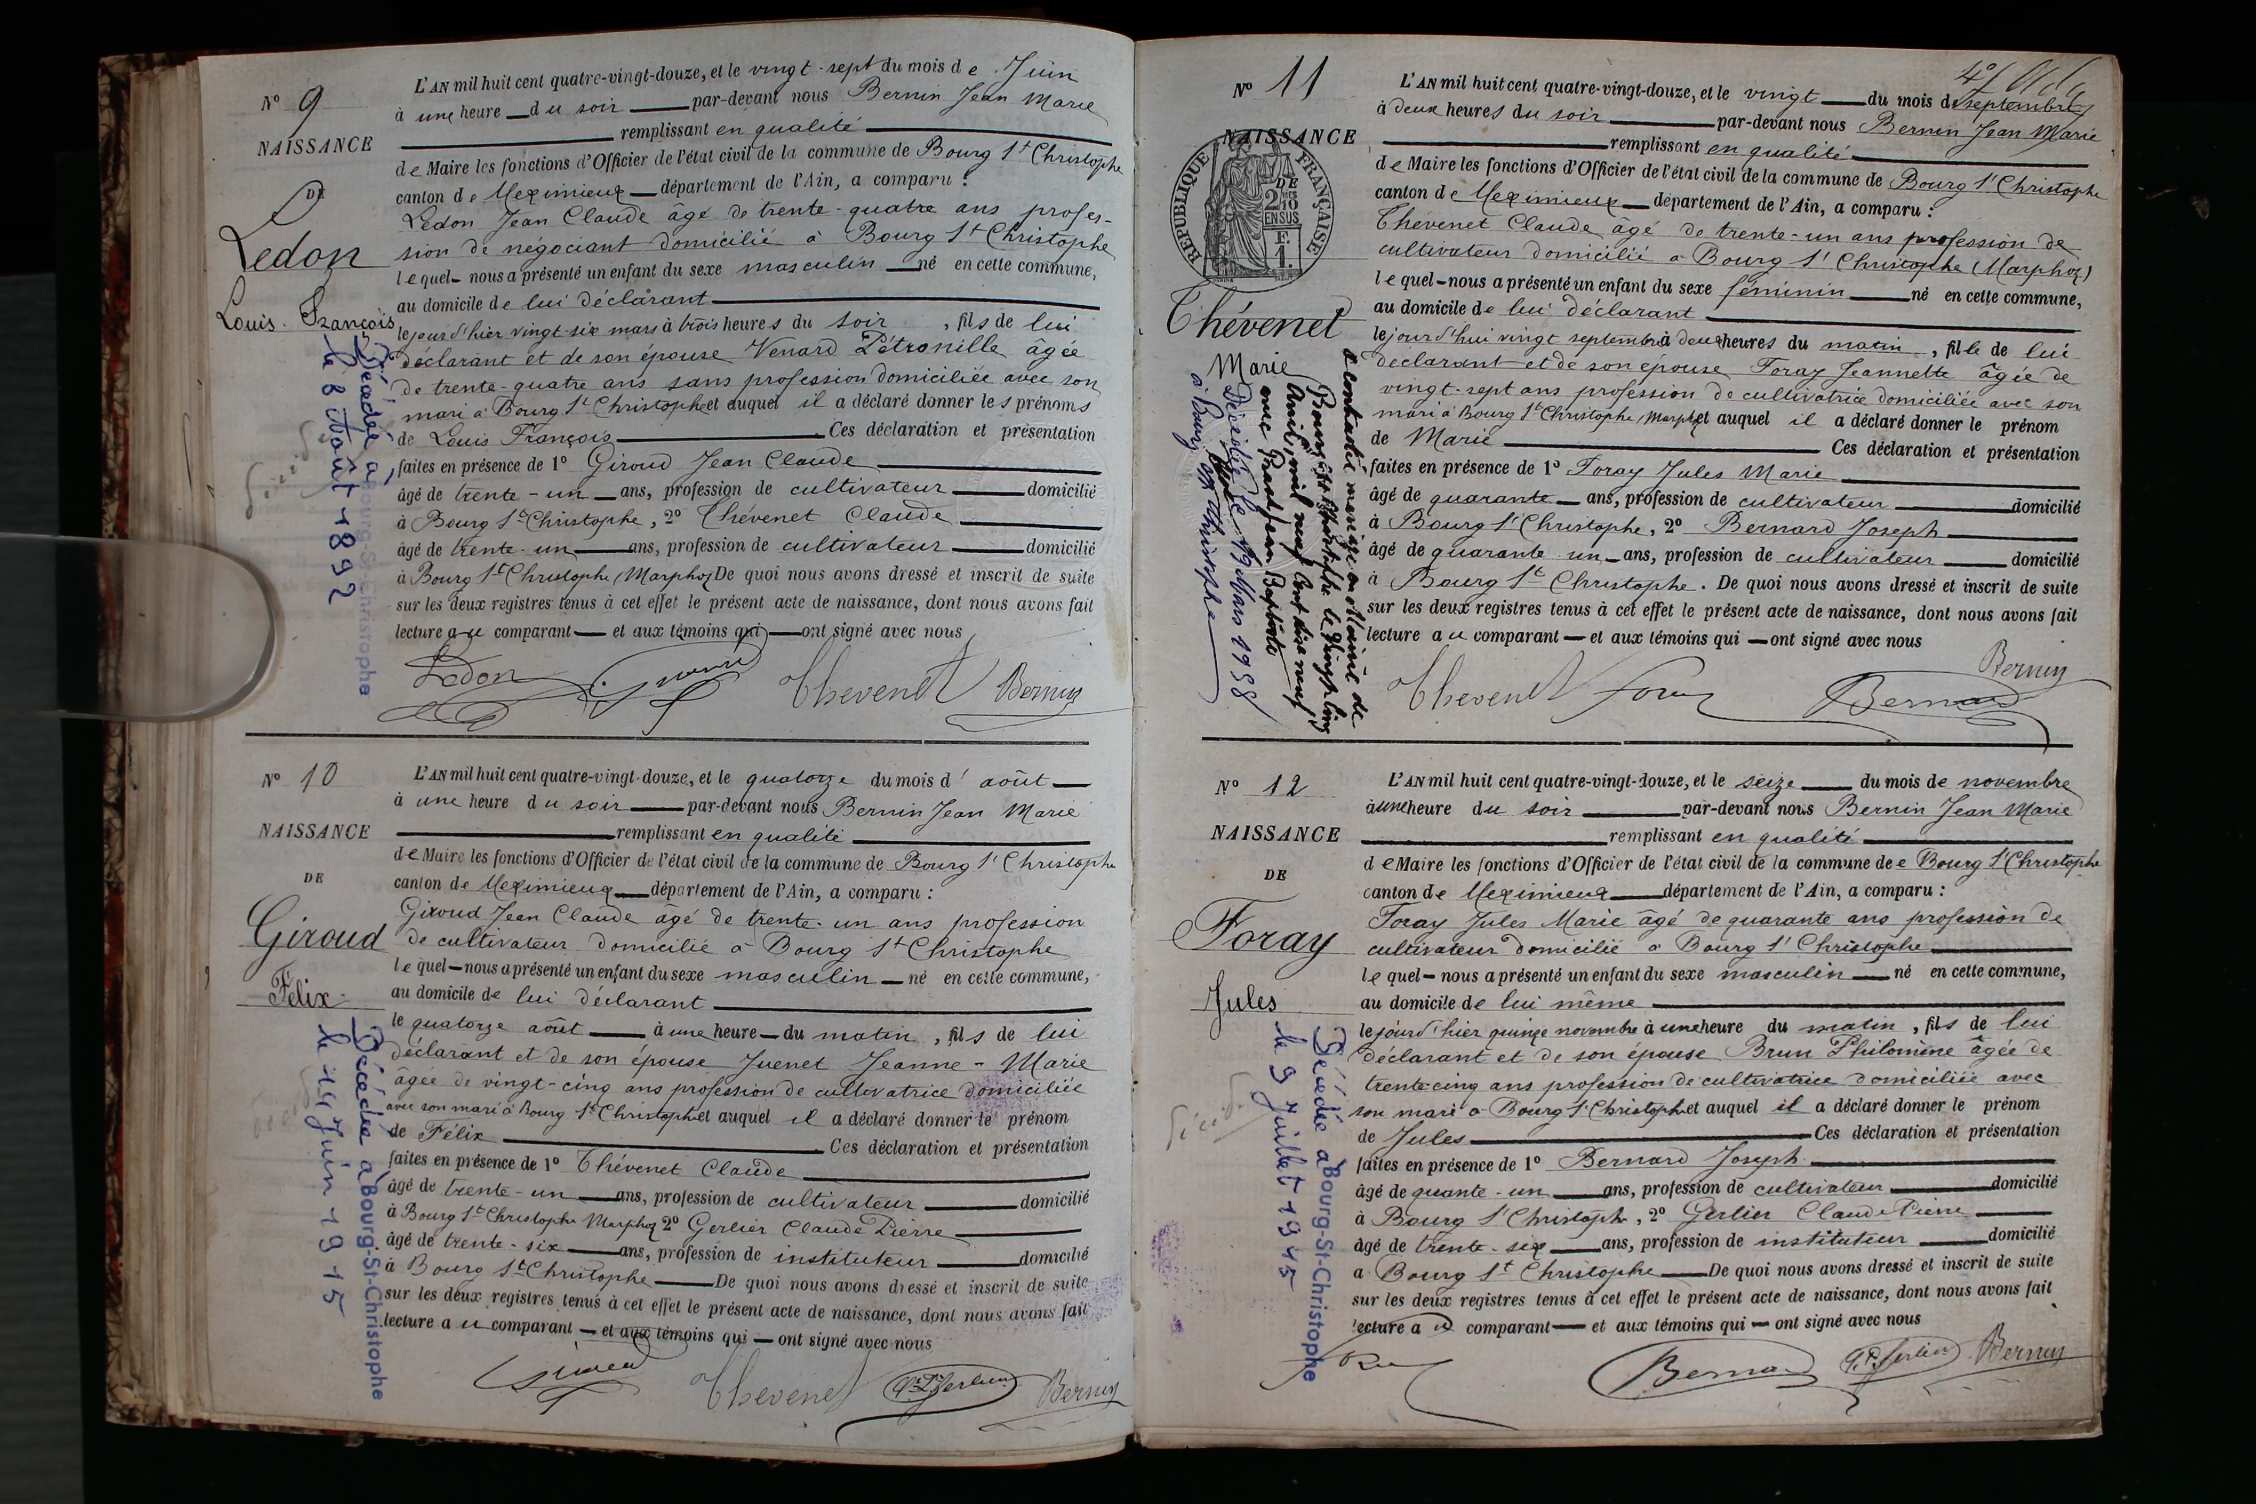 N° 9
NAISSANCE
DE
Ledon
Louis François
Décédé à Bourg-St-Christophe
le 8 Août 1892
L'AN mil huit cent quatre-vingt-douze, et le vingt-sept du mois de Juin
à une heure du soir par-devant nous Bernin Jean Marie
remplissant en qualité
de Maire les fonctions d'Officier de l'état civil de la commune de Bourg St Christophe
canton de Meximieux département de l'Ain, a comparu :
Ledon Jean Claude âgé de trente-quatre ans profes-
sion de négociant domicilié à Bourg St Christophe
lequel nous a présenté un enfant du sexe masculin né en cette commune,
au domicile de lui déclarant
le jour d'hier vingt-six mars à trois heures du soir, fils de lui
déclarant et de son épouse Venard Pétronille âgée
de trente-quatre ans sans profession domiciliée avec son
mari à Bourg St Christophe et auquel il a déclaré donner les prénoms
de Louis François Ces déclaration et présentation
faites en présence de 1° Giroud Jean Claude
âgé de trente-un ans, profession de cultivateur domicilié
à Bourg St Christophe, 2° Thévenet Claude
âgé de trente-un ans, profession de cultivateur domicilié
à Bourg St Christophe (Marphoz) De quoi nous avons dressé et inscrit de suite
sur les deux registres tenus à cet effet le présent acte de naissance, dont nous avons fait
lecture au comparant et aux témoins qui ont signé avec nous
Ledon Giroud Thevenet Bernin
N° 10
NAISSANCE
DE
Giroud
Félix
Décédé à Bourg-St-Christophe
le 14 Juin 1915
L'AN mil huit cent quatre-vingt-douze, et le quatorze du mois d'août
à une heure du soir par-devant nous Bernin Jean Marie
remplissant en qualité
de Maire les fonctions d'Officier de l'état civil de la commune de Bourg St Christophe
canton de Meximieux département de l'Ain, a comparu :
Giroud Jean Claude âgé de trente-un ans profession
de cultivateur domicilié à Bourg St Christophe
lequel nous a présenté un enfant du sexe masculin né en cette commune,
au domicile de lui déclarant
le quatorze août à une heure du matin, fils de lui
déclarant et de son épouse Juenet Jeanne-Marie
âgée de vingt-cinq ans profession de cultivatrice domiciliée
avec son mari à Bourg St Christophe et auquel il a déclaré donner le prénom
de Félix Ces déclaration et présentation
faites en présence de 1° Thévenet Claude
âgé de trente-un ans, profession de cultivateur domicilié
à Bourg St Christophe Marphoz 2° Gerlier Claude Pierre
âgé de trente-six ans, profession de instituteur domicilié
à Bourg St Christophe De quoi nous avons dressé et inscrit de suite
sur les deux registres tenus à cet effet le présent acte de naissance, dont nous avons fait
lecture au comparant et aux témoins qui ont signé avec nous
Giroud Thevenet C.P. Gerlier Bernin
N° 11
NAISSANCE
DE
RÉPUBLIQUE FRANÇAISE
2/10 EN SUS
F. 1.
Thévenet
Marie
a contracté mariage en Mairie de
Bourg St Christophe le Vingt cinq
Avril mil neuf cent dix neuf
avec Prant Jean Baptiste
Décédée le 19 Mars 1958
à Bourg St Christophe
L'AN mil huit cent quatre-vingt-douze, et le vingt du mois de septembre
à deux heures du soir par-devant nous Bernin Jean Marie
remplissant en qualité
de Maire les fonctions d'Officier de l'état civil de la commune de Bourg St Christophe
canton de Meximieux département de l'Ain, a comparu :
Thévenet Claude âgé de trente-un ans profession de
cultivateur domicilié à Bourg St Christophe (Marphoz)
lequel nous a présenté un enfant du sexe féminin né en cette commune,
au domicile de lui déclarant
le jourd'hui vingt septembre à deux heures du matin, fille de lui
déclarant et de son épouse Foray Jeannette âgée de
vingt-sept ans profession de cultivatrice domiciliée avec son
mari à Bourg St Christophe (Marph et auquel il a déclaré donner le prénom
de Marie Ces déclaration et présentation
faites en présence de 1° Foray Jules Marie
âgé de quarante ans, profession de cultivateur domicilié
à Bourg St Christophe, 2° Bernard Joseph
âgé de quarante-un ans, profession de cultivateur domicilié
à Bourg St Christophe. De quoi nous avons dressé et inscrit de suite
sur les deux registres tenus à cet effet le présent acte de naissance, dont nous avons fait
lecture au comparant et aux témoins qui ont signé avec nous
Thevenet Foray Bernard Bernin
N° 12
NAISSANCE
DE
Foray
Jules
Décédé à Bourg-St-Christophe
le 9 Juillet 1945
L'AN mil huit cent quatre-vingt-douze, et le seize du mois de novembre
à une heure du soir par-devant nous Bernin Jean Marie
remplissant en qualité
de Maire les fonctions d'Officier de l'état civil de la commune de e Bourg St Christophe
canton de Meximieux département de l'Ain, a comparu :
Foray Jules Marie âgé de quarante ans profession de
cultivateur domicilié à Bourg St Christophe
lequel nous a présenté un enfant du sexe masculin né en cette commune,
au domicile de lui même
le jourd'hier quinze novembre à une heure du matin, fils de lui
déclarant et de son épouse Brun Philomène âgée de
trente-cinq ans profession de cultivatrice domiciliée avec
son mari à Bourg St Christophe et auquel il a déclaré donner le prénom
de Jules Ces déclaration et présentation
faites en présence de 1° Bernard Joseph
âgé de quante-un ans, profession de cultivateur domicilié
à Bourg St Christophe, 2° Gerlier Claude Pierre
âgé de trente-six ans, profession de instituteur domicilié
a Bourg St Christophe De quoi nous avons dressé et inscrit de suite
sur les deux registres tenus à cet effet le présent acte de naissance, dont nous avons fait
lecture au comparant et aux témoins qui ont signé avec nous
Bernard C.P. Gerlier Bernin